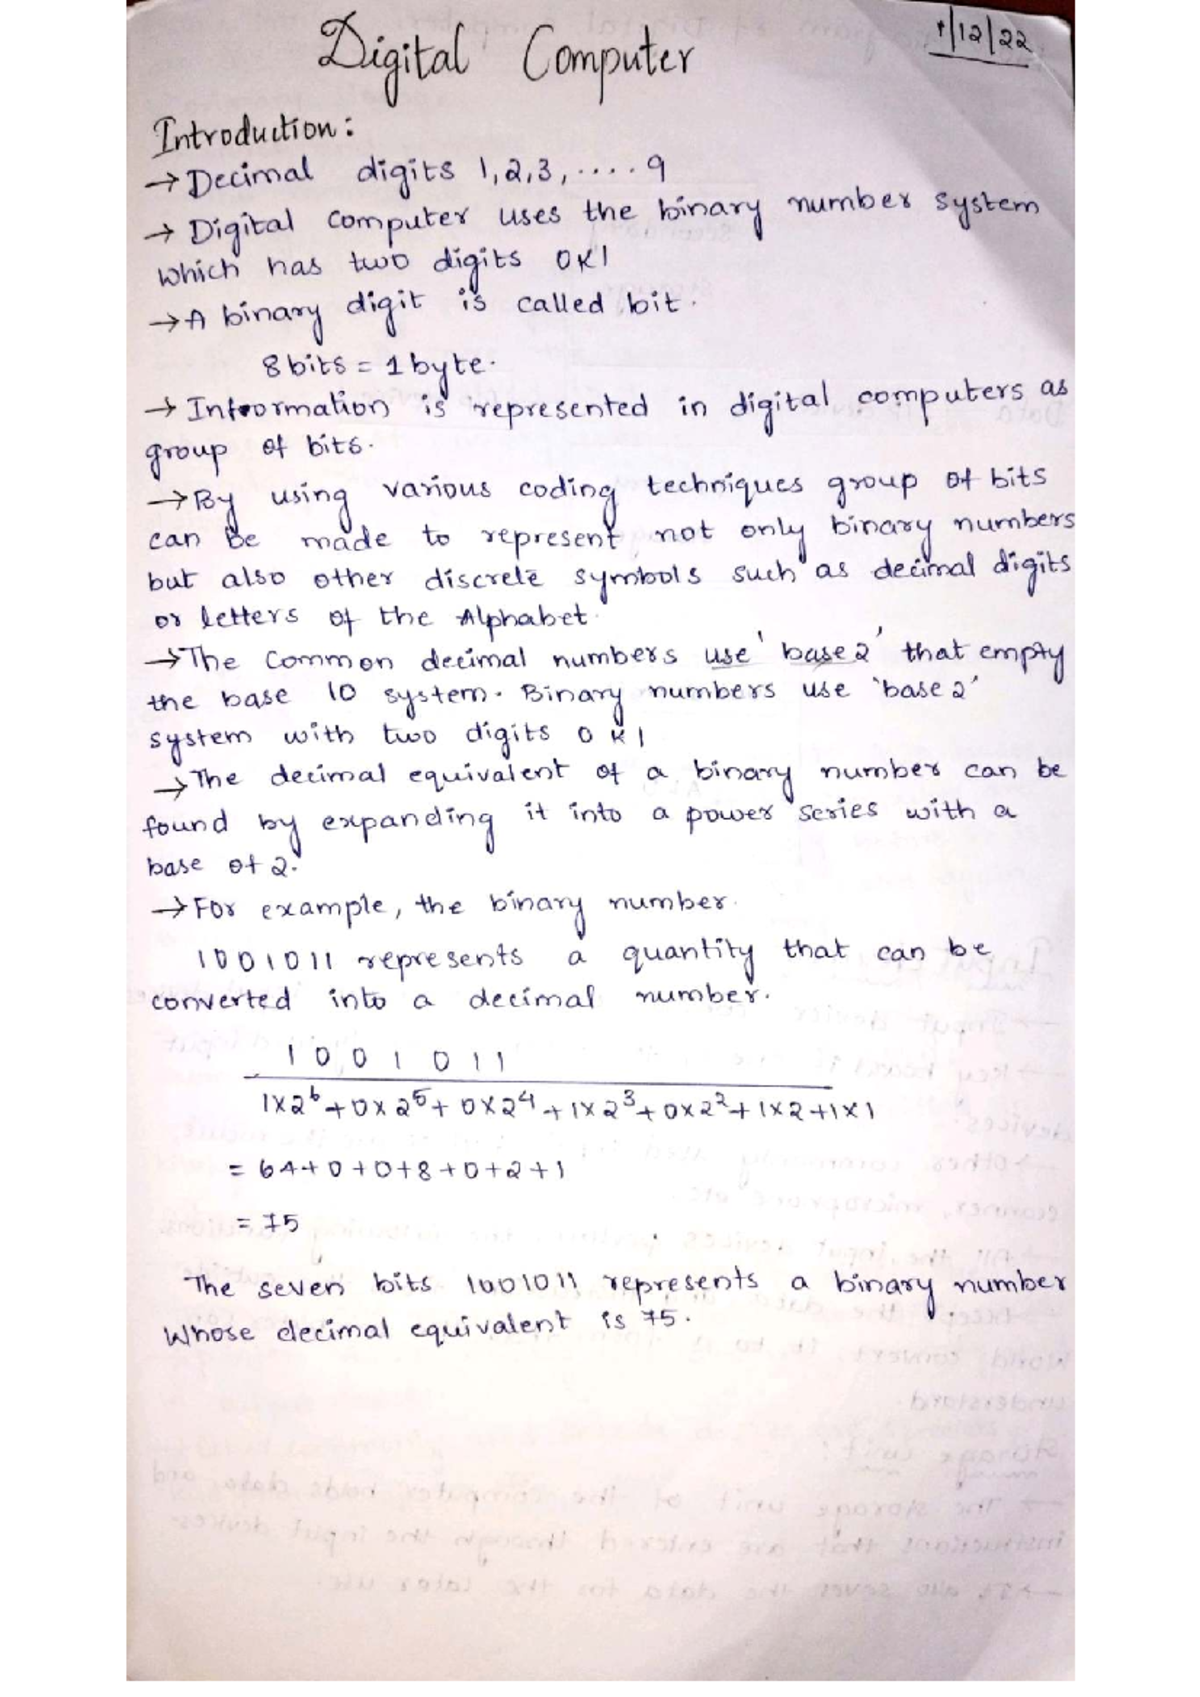 Digital Computer
1/12/22
Introduction:
→ Decimal digits 1,2,3,.....9
→ Digital computer uses the binary number system
which has two digits 0 & 1
→ A binary digit is called bit.
8 bits = 1 byte.
→ Information is represented in digital computers as
group of bits.
→ By using various coding techniques group of bits
can be made to represent not only binary numbers
but also other discrete symbols such as decimal digits
or letters of the Alphabet.
→ The common decimal numbers use 'base 2' that empty
the base 10 system. Binary numbers use 'base 2'
system with two digits 0 & 1
→ The decimal equivalent of a binary number can be
found by expanding it into a power series with a
base of 2.
→ For example, the binary number.
1001011 represents a quantity that can be
converted into a decimal number.
1 0 0 1 0 1 1
1×2⁶+0×2⁵+0×2⁴+1×2³+0×2²+1×2+1×1
= 64+0+0+8+0+2+1
= 75
The seven bits 1001011 represents a binary number
whose decimal equivalent is 75.